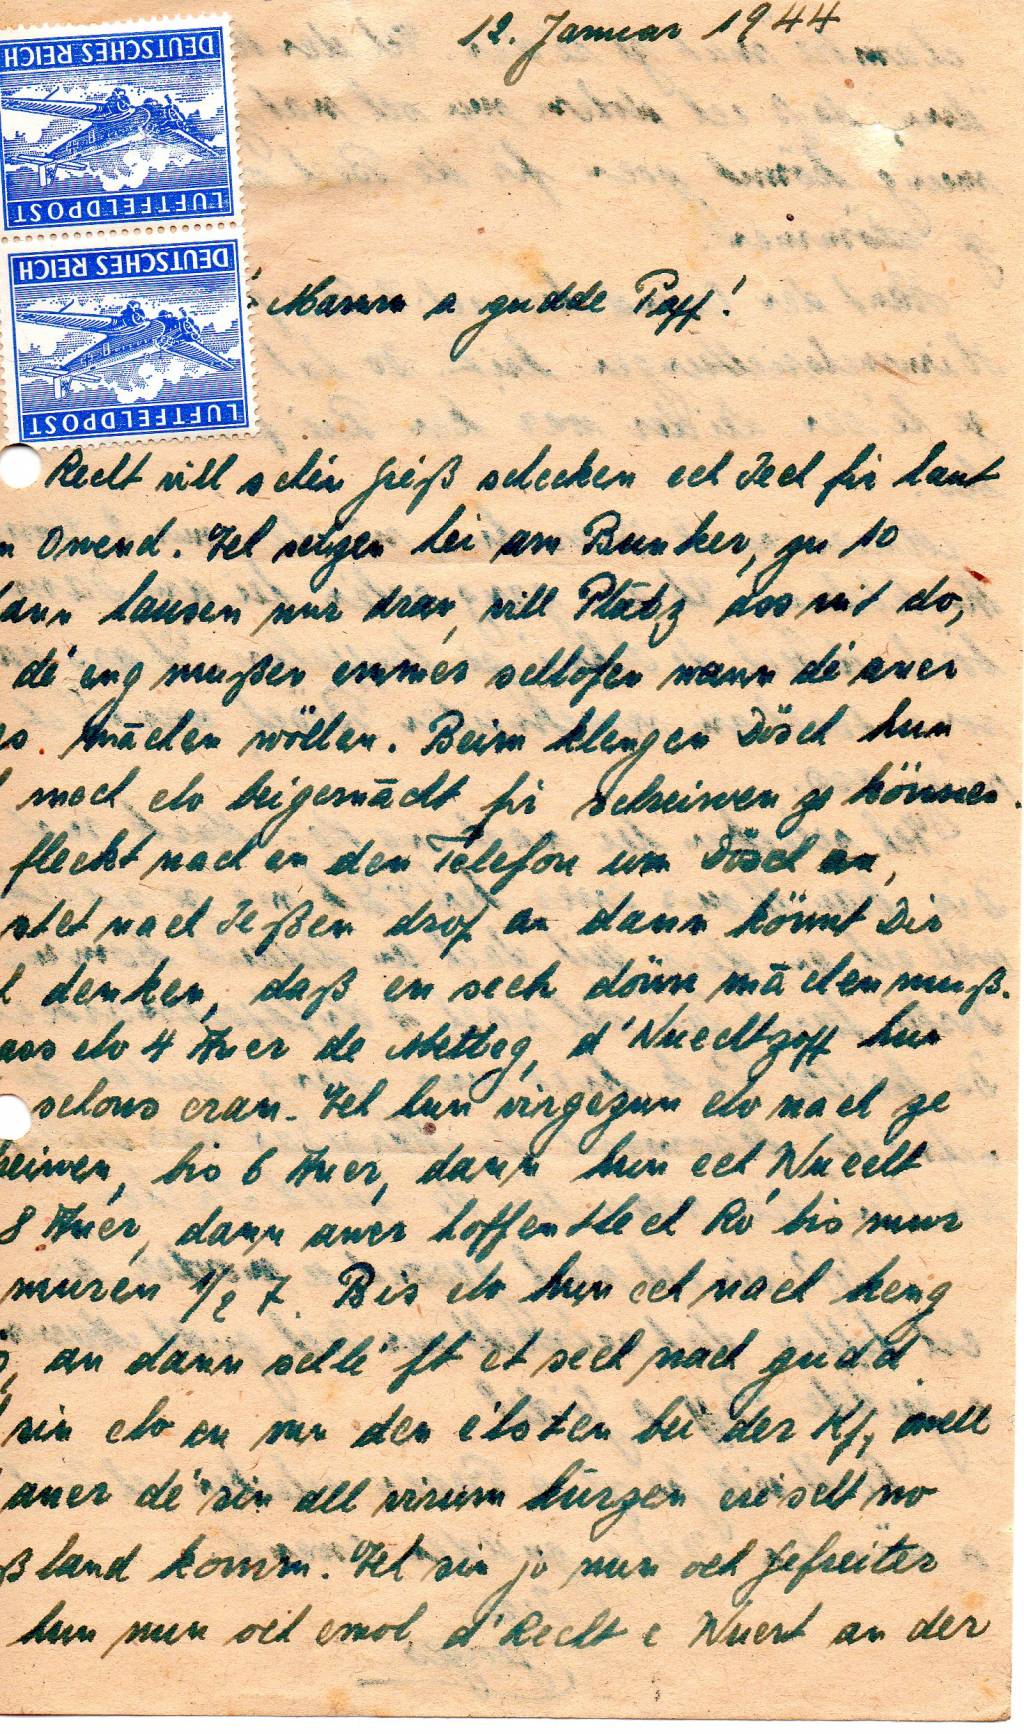 12. Januar 1944
DEUTSCHES REICH
LUFTFELDPOST
DEUTSCHES REICH
LUFTFELDPOST
Mamm a gudde Papp!
Recht vill schéin Gréiß schecken ech Iech fir haut
Owend. Ech setzen hei am Bunker, zu 10
Mann hausen mir dran, vill Platz ass nit do,
dé eng mußen emmer schlofen wann dé aner
mächen wöllen. Beim klengen Dösch hun
mech elo beigemächt fir schreiwen ze können.
flecht nach en den Telefon um Dösch an,
nach Ießen drop an dann könnt Dir
denken, daß en sech dönn mächen muß.
ass elo 4 Auer de Metteg, d'Wuechtzäff hun
schons eran. Ech hun virgezun elo nach ze
schreiwen, bis 6 Auer, dann hun ech Wuecht
8 Auer, dann awer hoffentlech Ro bis mur
muren 1/2 7. Bis elo hun ech nach keng
an dann schléift et sech nach gudd.
sin elo en vun den elsten bei der Kp, well
awer dé sin all virum kurzen eischt no
Rußland komm. Ech sin jo nun och Gefreiter
hun nun och emol d'Recht e Wuert an der